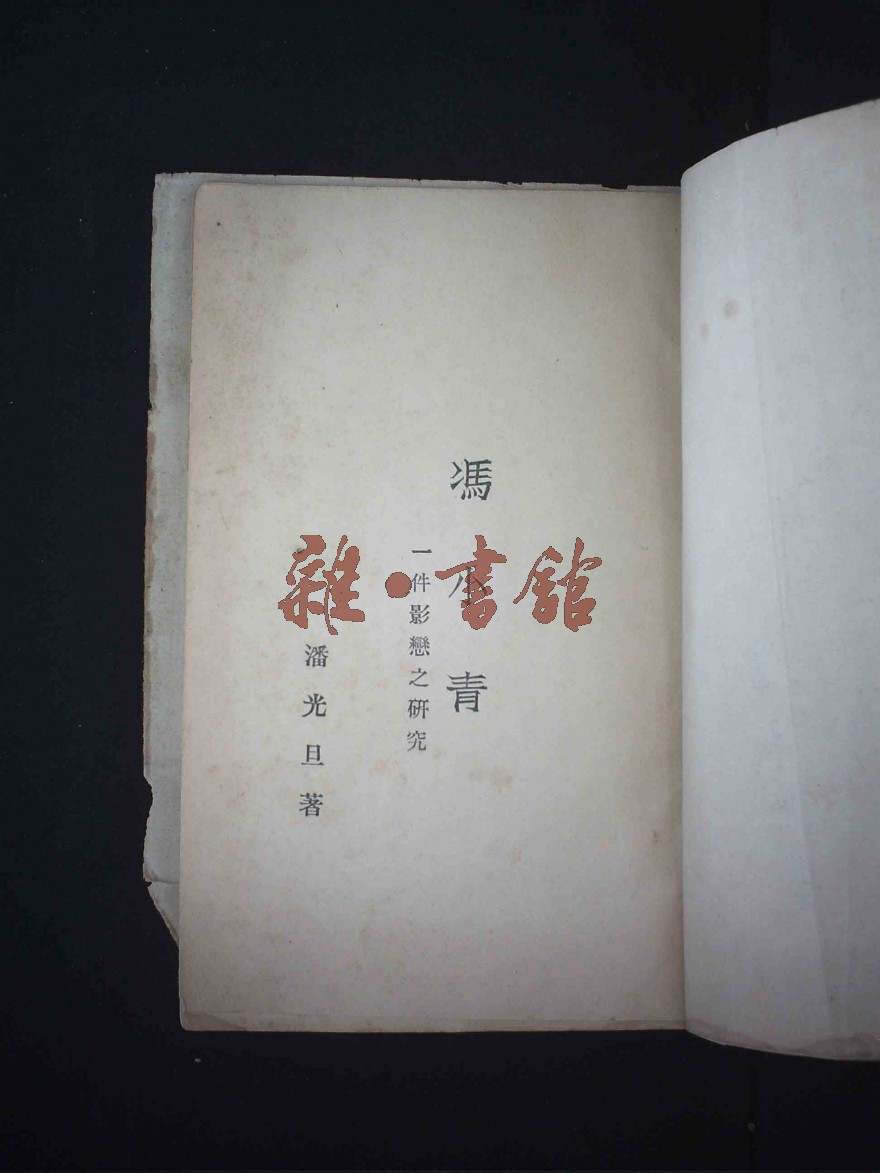 馮小青
一件影戀之研究
潘光旦著
雜·書館